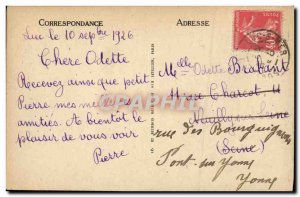 CORRESPONDANCE
Luc le 10 septbre 1926
Chère Odette
Recevez ainsi que petit
Pierre mes
amitiés. A bientôt le
plaisir de vous voir
Pierre
ADRESSE
Melle Odette Brabant
11 rue Charcot 11
Neuilly sur Seine
(Seine)
rue des
Pont-sur-Yonne
Yonne